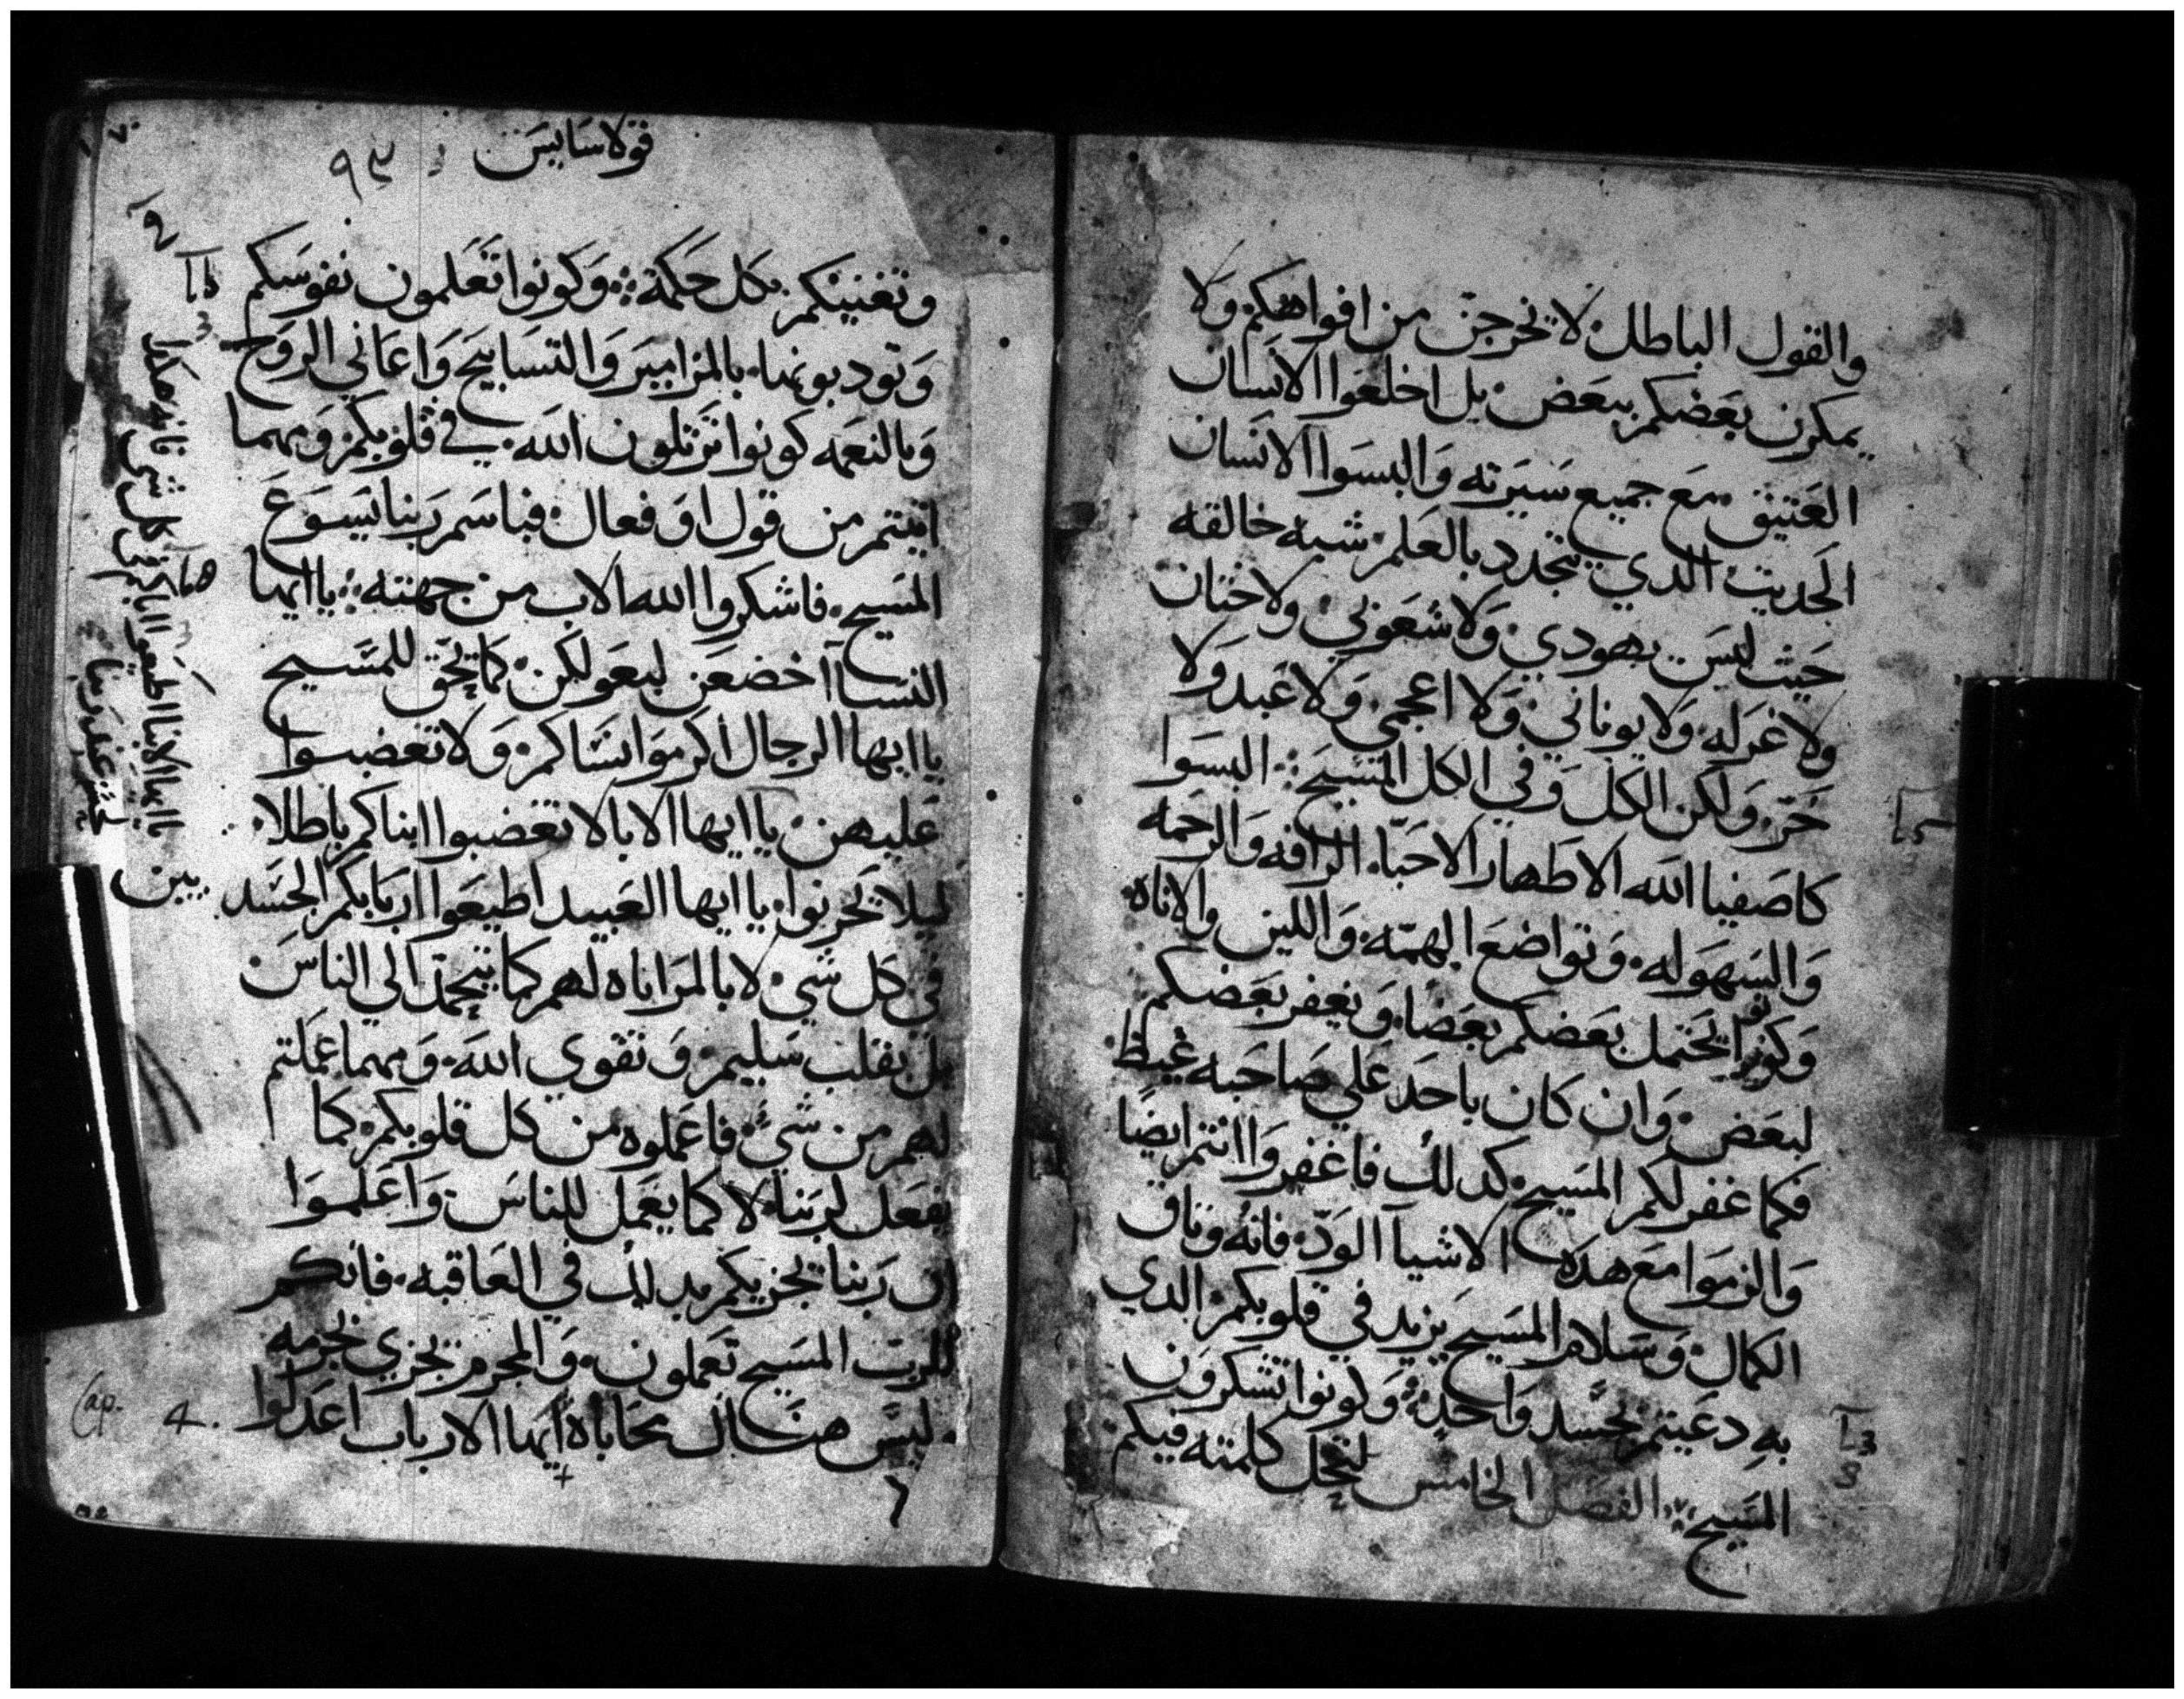 والقول الباطل لا يخرجن من افواهكم ولا
يمكرن بعضكم ببعض بل اخلعوا الانسان
العتيق مع جميع سيرته والبسوا الانسان
الجديث الدي يتجدد بالعلم شبه خالقه
حيث ليس يهودي ولا شعوبي ولا ختان
ولا غرله ولا يوناني ولا اعجمي ولا عبد ولا
حر ولكن الكل وفي الكل المسيح البسوا
كاصفيا الله الاطهار الاحبا الرافه والرحمه
والسهوله وتواضع الهمه واللين والاناه
وكونوا يحتمل بعضكم بعضا ويغفر بعضكم
لبعض وان كان باحد علي صاحبه غيظ
فكما غفر لكم المسيح كدلك فاغفروا انتم ايضا
والزموا مع هده الاشيا الود فانه وثاق
الكمال وسلام المسيح يزيد في قلوبكم الدي
به دعيتم بجسد واحد وكونوا تشكرون
المسيح الفصل الخامس لتحل كلمته فيكم
قولاسايس ٩٣
وتغنينكم بكل حكمة وكونوا تعلمون نفوسكم
وتودبونها بالمزامير والتسابيح واغاني الروح
وبالنعمه كونوا ترتلون الله في قلوبكم ومهما
اتيتم من قول او فعال فباسم ربنا يسوع
المسيح فاشكروا الله الاب من جهته يا ايها
النسا اخضعن لبعولكن كما يحق للمسيح
يا ايها الرجال اكرموا نساكم ولا تغضبوا
عليهن يا ايها الابا لا تغضبوا ابناكم باطلا
ليلا يحزنوا يا ايها العبيد اطيعوا اربابكم الجسد
يين
في كل شي لا بالمراناه لهم كما يتحمد الى الناس
بل بقلب سليم وتقوي الله ومهما عملتم
لهم من شي فاعملوه من كل قلوبكم كما
يفعل لربنا لا كما يعمل للناس واعلموا
ان ربنا يجزيكم بدلك في العاقبه فانكم
للرب المسيح تعملون والمجرم يجزي بجرمه
ليس هناك محاباة ايها الارباب اعدلوا
Cap. 4.
يا ايها الابنا اطيعوا اباكم في كل شي فانه هكدا
يحسن عند ربنا